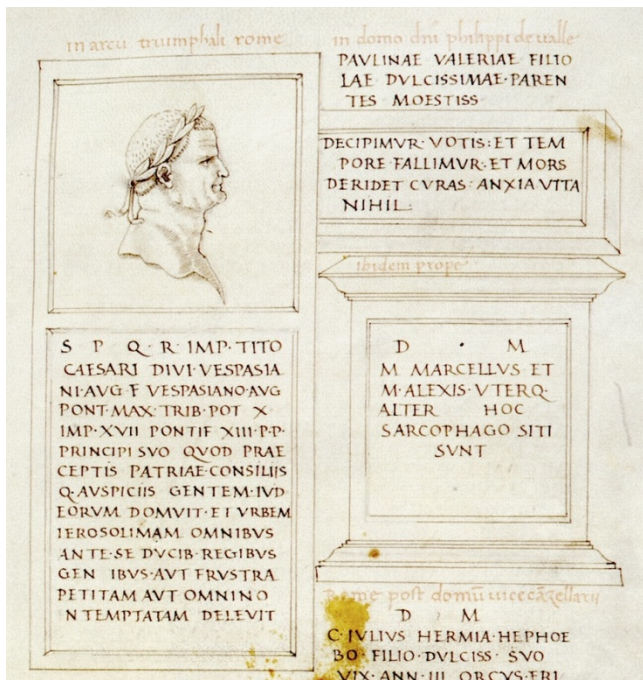 in arcu triumphali rome
S P Q · R · IMP · TITO
CAESARI DIVI · VESPASIA
NI · AVG F VESPASIANO · AVG
PONT · MAX · TRIB · POT X
IMP · XVII PONTIF XIII · P · P ·
PRINCIPI SVO QVOD PRAE
CEPTIS PATRIAE · CONSILIIS
Q · AVSPICIIS GENTEM · IVD
EORVM DOMVIT · ET VRBEM
IEROSOLIMAM OMNIBVS
ANTE · SE DVCIB · REGIBVS
GEN IBVS · AVT FRVSTRA
PETITAM AVT OMNINO
N TEMPTATAM DELEVIT
in domo dni philippi de valle
PAVLINAE VALERIAE FILIO
LAE DVLCISSIMAE · PAREN
TES MOESTISS
DECIPIMVR · VOTIS : ET TEM
PORE · FALLIMVR · ET MORS
DERIDET CVRAS · ANXIA VITA
NIHIL ·
ibidem prope
D · M
M MARCELLVS ET
M · ALEXIS · VTERQ ·
ALTER HOC
SARCOPHAGO SITI
SVNT
Rome post domū vicecāzellarii
D M
C · IVLIVS HERMIA · HEPHOE
BO · FILIO · DVLCISS · SVO
VIX · ANN · III ORCVS · ERI